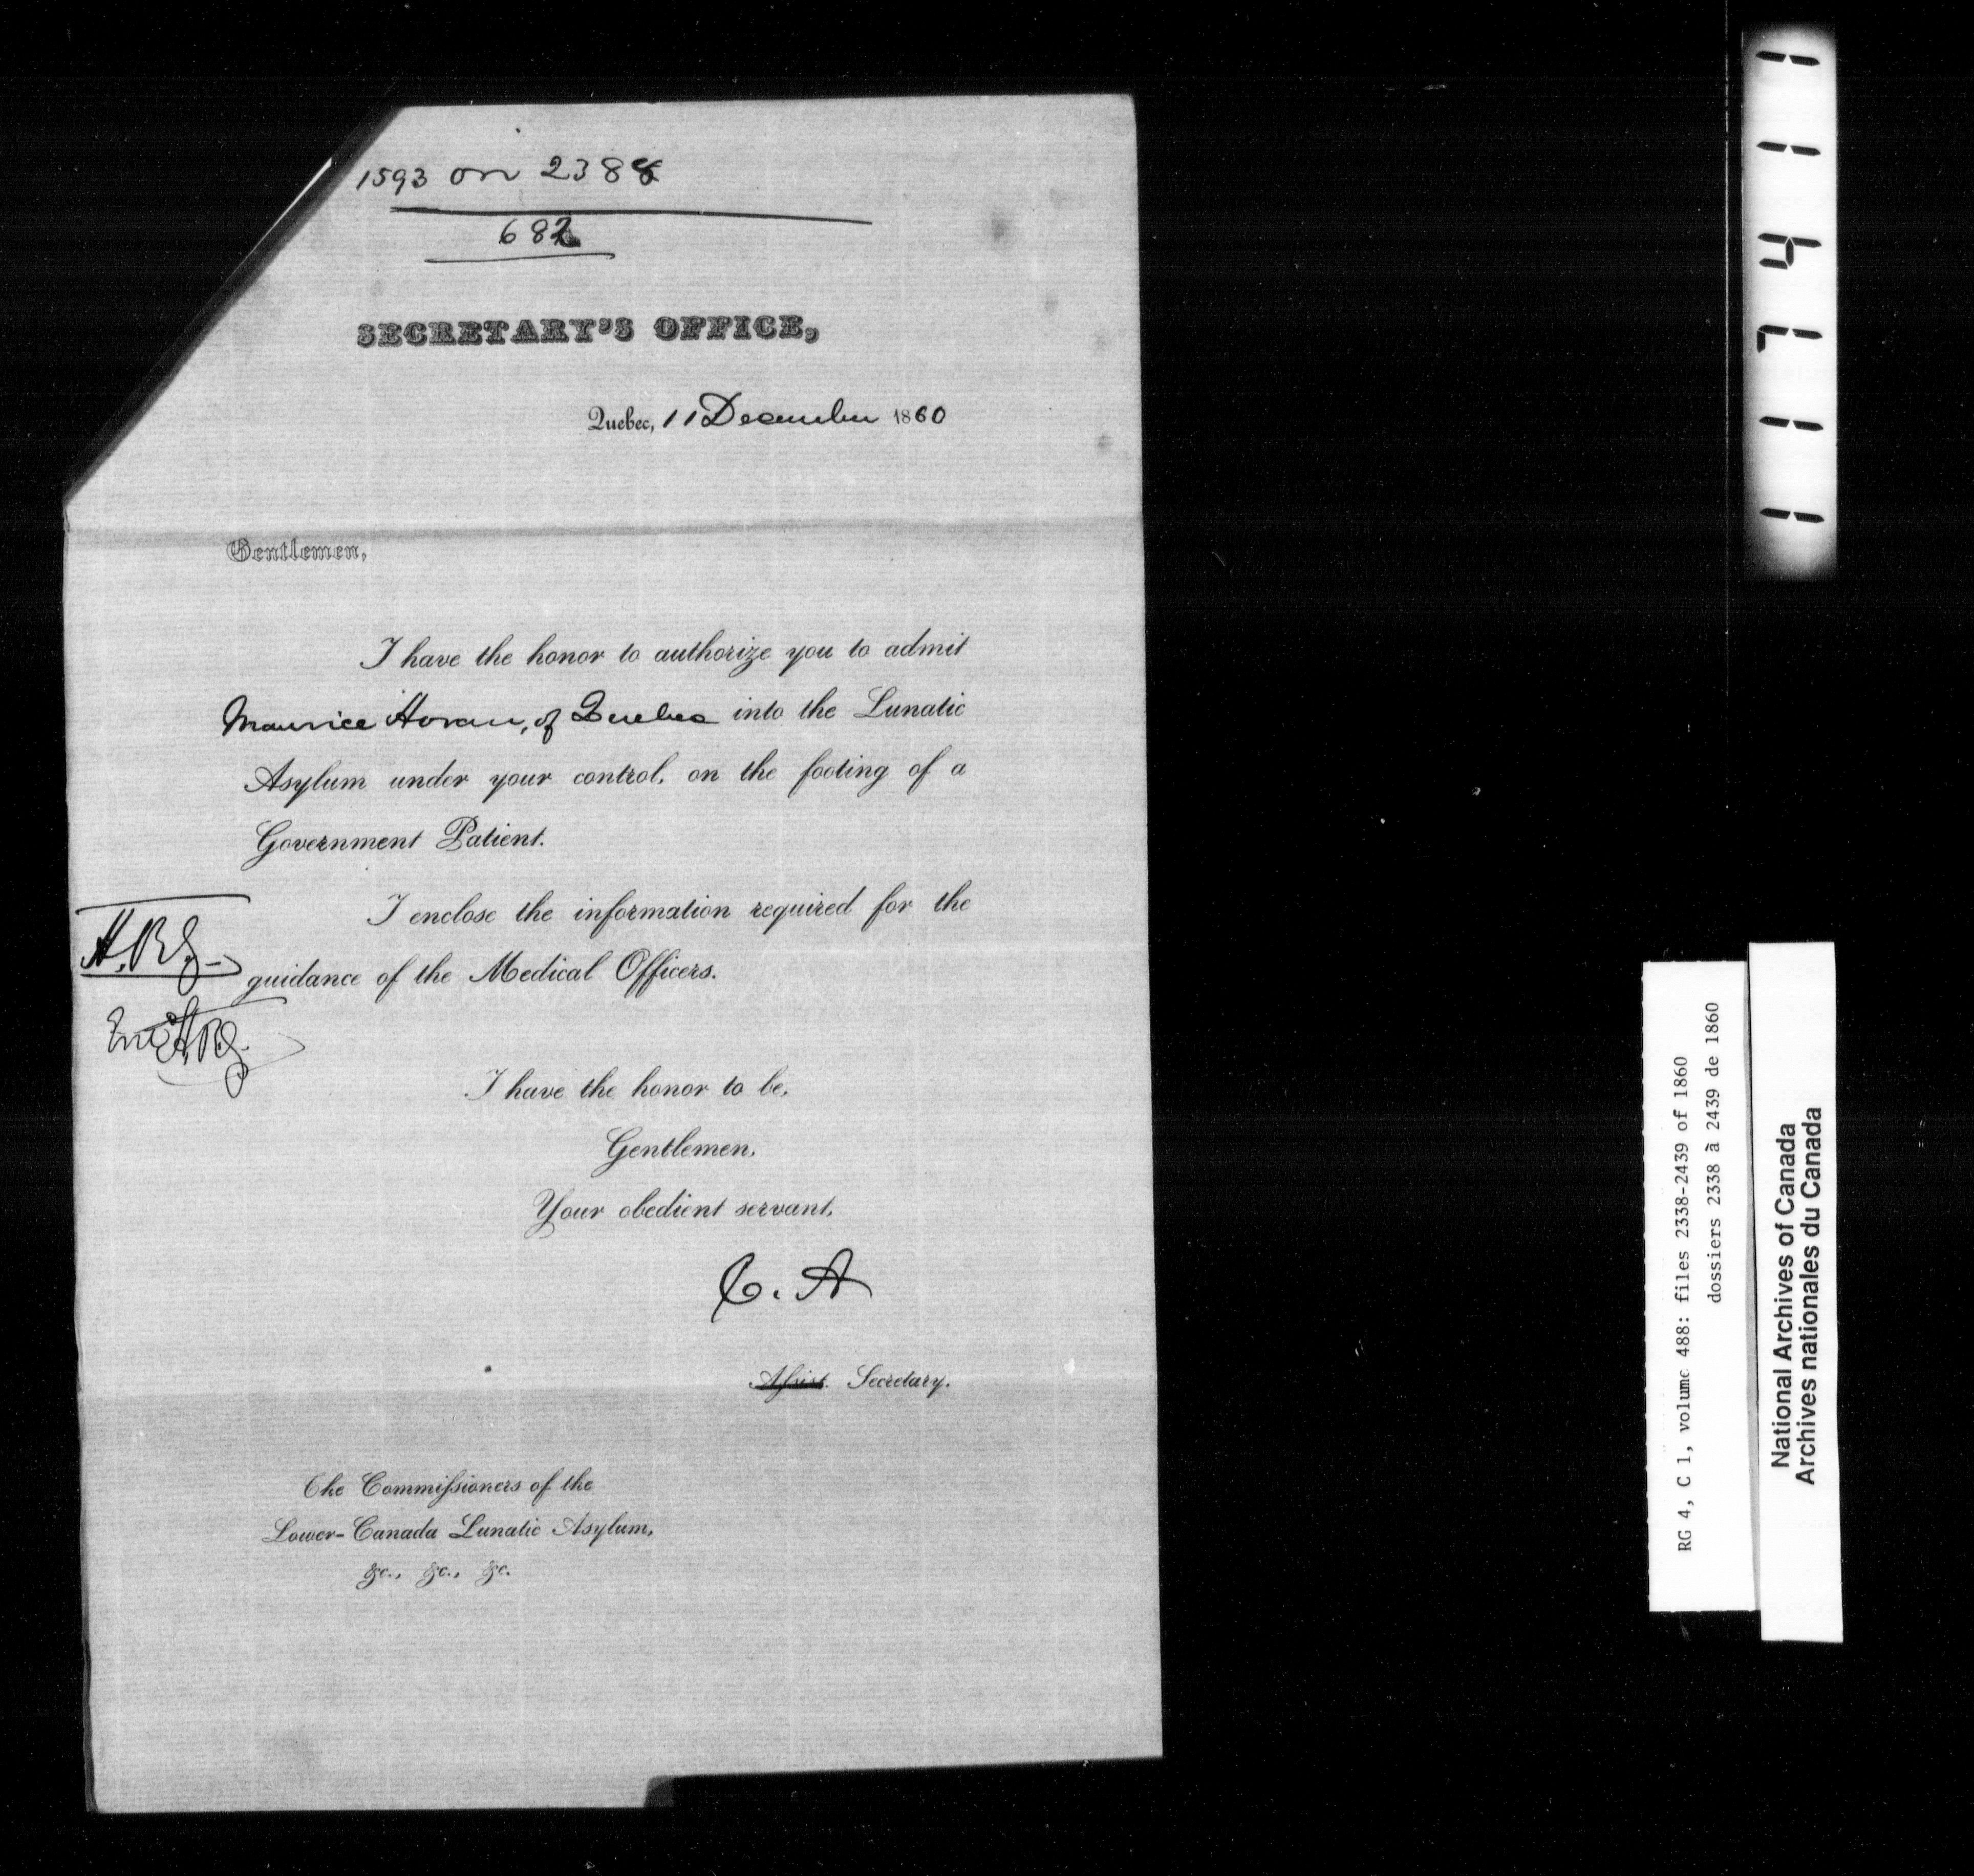 1593 on 2388
682
SECRETARY'S OFFICE,
Quebec, 11 December 1860
Gentlemen,
I have the honor to authorize you to admit
Maurice Horan, of Quebec into the Lunatic
Asylum under your control, on the footing of a
Government Patient.
I enclose the information required for the
guidance of the Medical Officers.
H.B.J.
H.B.J.
I have the honor to be,
Gentlemen,
Your obedient servant,
C. A
Assist. Secretary.
The Commissioners of the
Lower-Canada Lunatic Asylum,
&c., &c., &c.
114711
RG 4, C 1, volume 488: files 2338-2439 of 1860
dossiers 2338 à 2439 de 1860
National Archives of Canada
Archives nationales du Canada